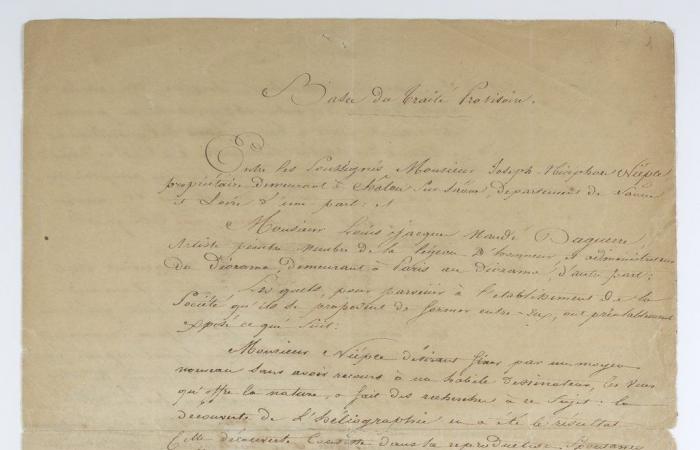 Bases du traité Provisoire.
Entre les Soussignés Monsieur Joseph-Nicéphore Niépce
propriétaire demeurant à Châlon Sur Saône, département de Saône
et Loire d'une part; et
Monsieur Louis-Jacques Mandé Daguerre,
Artiste peintre Membre de la légion d'honneur, et administrateur
du Diorama, demeurant à Paris au diorama, d'autre part;
Les quels, pour parvenir à l'établissement de la
Société qu'ils se proposent de former entre-eux, ont préalablement
exposé ce qui suit:
Monsieur Niépce désirant fixer par un moyen
nouveau sans avoir recours à un habile dessinateur, les vues
qu'offre la nature, a fait des recherches à ce sujet: la
découverte de l'Héliographie en a été le résultat.
Cette découverte Consiste dans la reproduction Spontanée